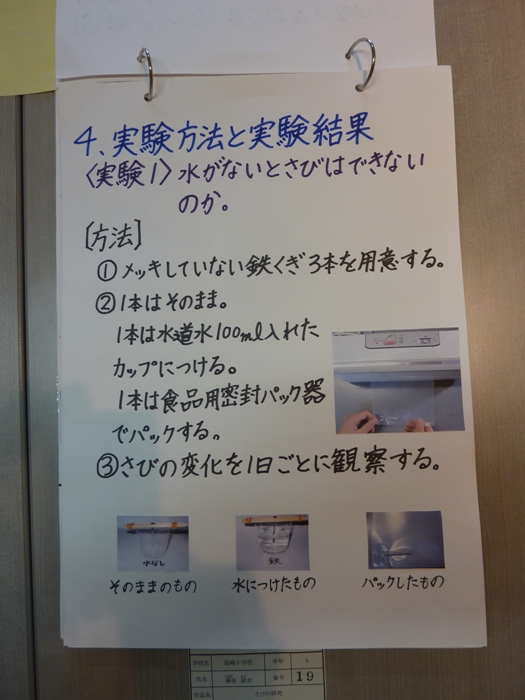 4、実験方法と実験結果
〈実験1〉水がないとさびはできない
のか。
[方法]
①メッキしていない鉄くぎ3本を用意する。
②1本はそのまま。
1本は水道水100ml入れた
カップにつける。
1本は食品用密封パック器
でパックする。
③さびの変化を1日ごとに観察する。
水なし
鉄
そのままのもの
水につけたもの
パックしたもの
学校名
小学校
学年
氏名
番号
19
作品名
さびの研究